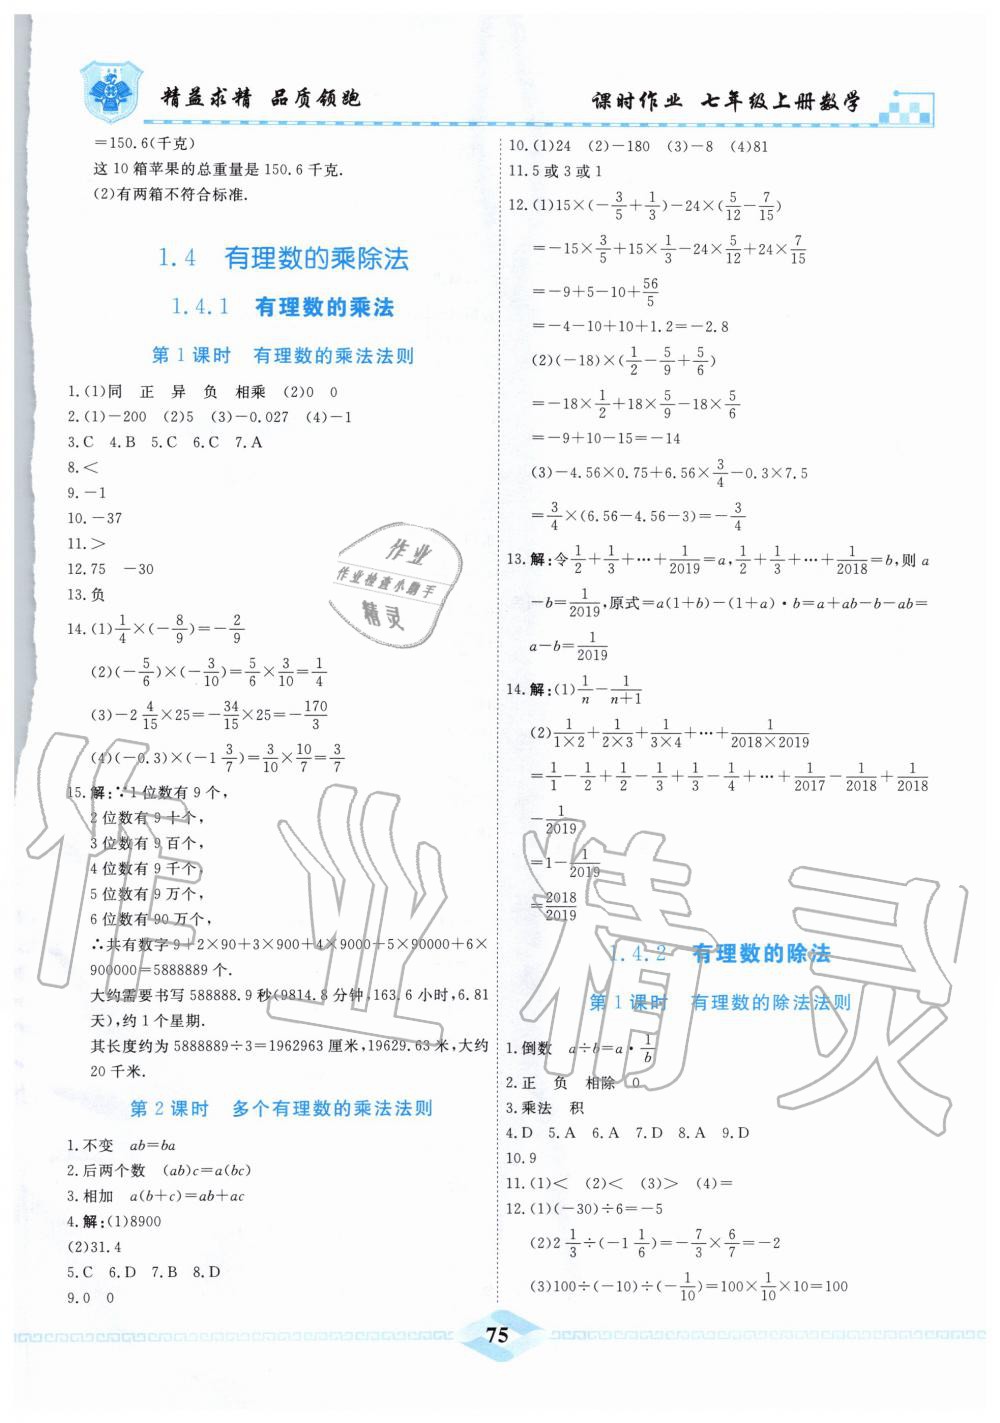 精益求精 品质领跑
课时作业 七年级上册数学
=150.6(千克)
这 10 箱苹果的总重量是 150.6 千克.
(2)有两箱不符合标准.
1.4 有理数的乘除法
1.4.1 有理数的乘法
第 1 课时 有理数的乘法法则
1.(1)同 正 异 负 相乘 (2)0 0
2.(1)-200 (2)5 (3)-0.027 (4)-1
3.C 4.B 5.C 6.C 7.A
8.<
9.-1
10.-37
11.>
12.75 -30
13.负
14.(1)1/4×(-8/9)=-2/9
(2)(-5/6)×(-3/10)=5/6×3/10=1/4
(3)-2 4/15×25=-34/15×25=-170/3
(4)(-0.3)×(-1 3/7)=3/10×10/7=3/7
15.解:∵1 位数有 9 个,
2 位数有 9 十个,
3 位数有 9 百个,
4 位数有 9 千个,
5 位数有 9 万个,
6 位数有 90 万个,
∴共有数字 9+2×90+3×900+4×9000+5×90000+6×
900000=5888889 个.
大约需要书写 588888.9 秒(9814.8 分钟,163.6 小时,6.81
天),约 1 个星期.
其长度约为 5888889÷3=1962963 厘米,19629.63 米,大约
20 千米.
第 2 课时 多个有理数的乘法法则
1.不变 ab=ba
2.后两个数 (ab)c=a(bc)
3.相加 a(b+c)=ab+ac
4.解:(1)8900
(2)31.4
5.C 6.D 7.B 8.D
9.0 0
10.(1)24 (2)-180 (3)-8 (4)81
11.5 或 3 或 1
12.(1)15×(-3/5+1/3)-24×(5/12-7/15)
=-15×3/5+15×1/3-24×5/12+24×7/15
=-9+5-10+56/5
=-4-10+10+1.2=-2.8
(2)(-18)×(1/2-5/9+5/6)
=-18×1/2+18×5/9-18×5/6
=-9+10-15=-14
(3)-4.56×0.75+6.56×3/4-0.3×7.5
=3/4×(6.56-4.56-3)=-3/4
13.解:令1/2+1/3+…+1/2019=a,1/2+1/3+…+1/2018=b,则 a
-b=1/2019,原式=a(1+b)-(1+a)·b=a+ab-b-ab=
a-b=1/2019
14.解:(1)1/n-1/(n+1)
(2)1/(1×2)+1/(2×3)+1/(3×4)+…+1/(2018×2019)
=1/1-1/2+1/2-1/3+1/3-1/4+…+1/2017-1/2018+1/2018
-1/2019
=1-1/2019
=2018/2019
1.4.2 有理数的除法
第 1 课时 有理数的除法法则
1.倒数 a÷b=a·1/b
2.正 负 相除 0
3.乘法 积
4.D 5.A 6.A 7.D 8.A 9.D
10.9
11.(1)< (2)< (3)> (4)=
12.(1)(-30)÷6=-5
(2)2 1/3÷(-1 1/6)=-7/3×6/7=-2
(3)100÷(-10)÷(-1/10)=100×1/10×10=100
75
作业
作业检查小助手
精灵
作业精灵